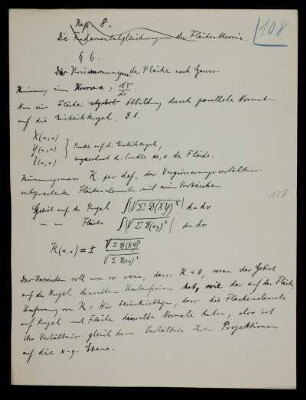 Kap. 8.
Die Fundamentalgleichungen der Flächentheorie.
108
§ 6.
Das Krümmungsmaß der Fläche nach Gauss.
Krümmung einer Kurve: dτ/ds
Von einer Fläche Abbildung durch parallele Normale
auf die Einheitskugel. D.h.
X(u,v)
Y(u,v) Punkt auf d. Einheitskugel,
Z(u,v) zugeordnet d. Punkte u, v der Fläche.
Krümmungsmass K per def. das Vergrösserungsverhältnis
entsprechender Flächenelemente mit einem Vorzeichen
Gebiet auf der Kugel ∫ |√Σ (XY)²| du dv
" " Fläche ∫ |√Σ (xy)²| du dv
K(u,v) = ± √Σ (XY)² / √Σ (xy)²
128
Das Vorzeichen soll so sein, dass K > 0, wenn das Gebiet
auf der Kugel denselben Umlaufssinn hat, wie das auf der Fläche.
Umformung von K: Man berücksichtigt, dass die Flächenelemente
auf Kugel und Fläche dieselbe Normale haben, also ist
ihr Verhältnis gleich dem Verhältnis ihrer Projektionen
auf die x-y-Ebene.